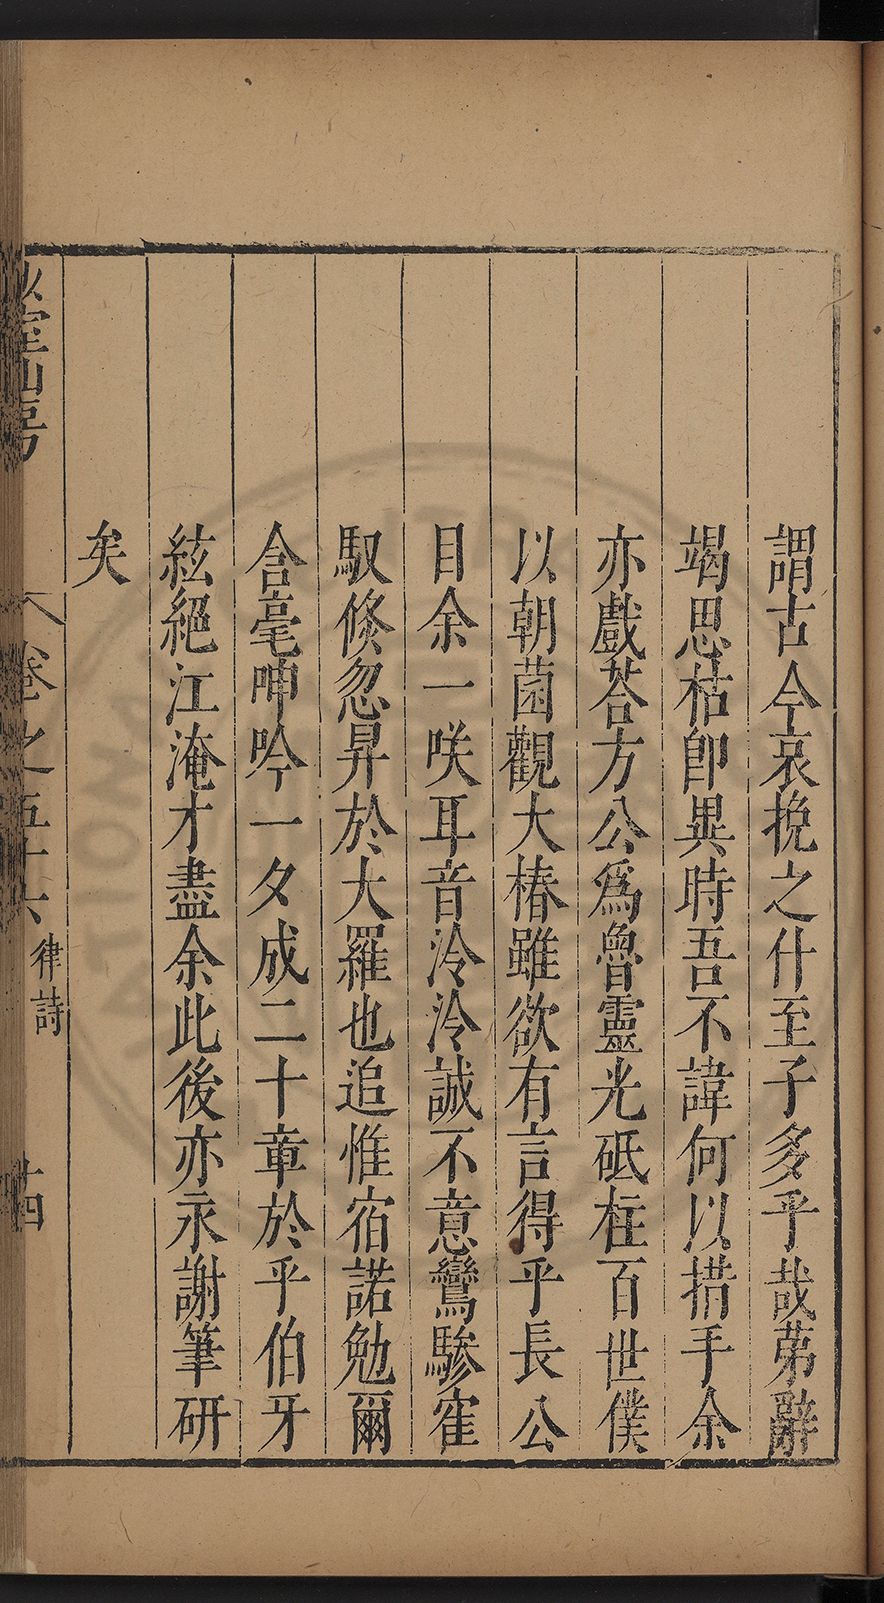 謂古今哀挽之什至子多乎哉苐辭
竭思枯卽異時吾不諱何以措手余
亦戲荅方公爲魯靈光砥柱百世僕
以朝菌觀大椿雖欲有言得乎長公
目余一咲耳音泠泠誠不意鸞驂寉
馭倐忽昇於大羅也追惟宿諾勉爾
含毫呻吟一夕成二十章於乎伯牙
絃絕江淹才盡余此後亦永謝筆研
矣
山房
卷之五十六
律詩
廿四